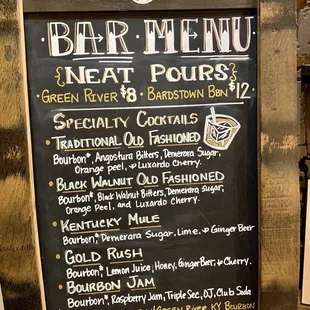 BAR MENU
{NEAT POURS}
• GREEN RIVER $8 • BARDSTOWN BBN $12
SPECIALTY COCKTAILS
• TRADITIONAL OLD FASHIONED
Bourbon*, Angostura Bitters, Demerara Sugar,
Orange peel, & Luxardo Cherry.
• BLACK WALNUT OLD FASHIONED
Bourbon*, Black Walnut Bitters, Demerara sugar,
Orange Peel, and Luxardo Cherry.
• KENTUCKY MULE
Bourbon*, Demerara Sugar, Lime, & Ginger Beer
• GOLD RUSH
Bourbon*, Lemon Juice, Honey, Ginger Beer, & Cherry.
• BOURBON JAM
Bourbon*, Raspberry Jam, Triple Sec, OJ, Club Soda
GREEN RIVER, KY BOURBON